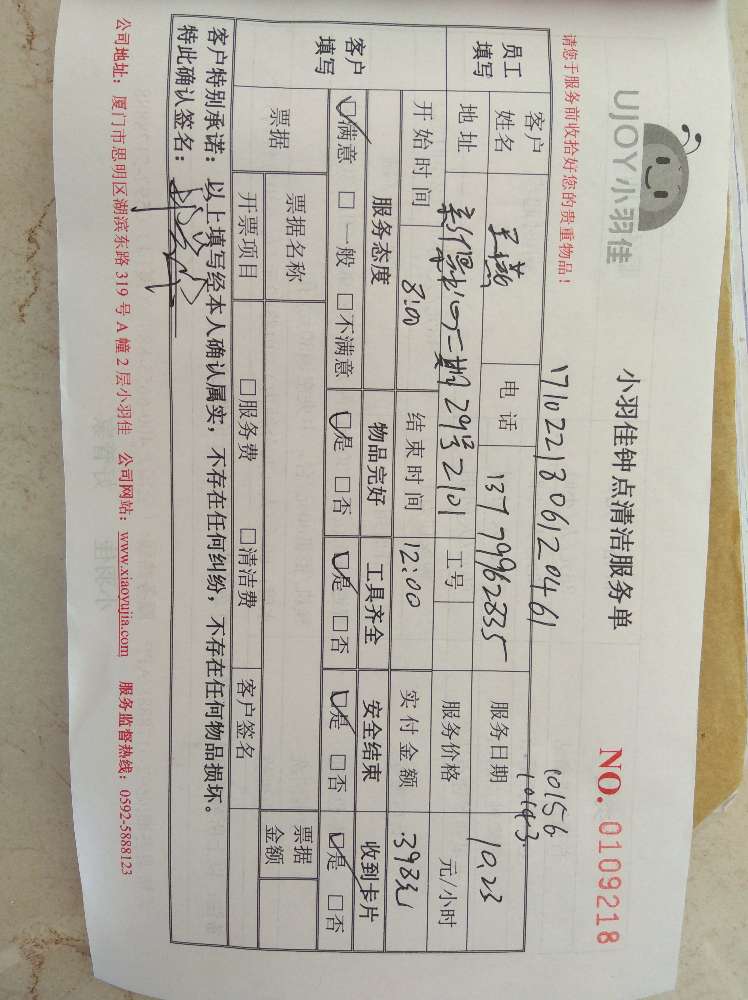 UJOY小羽佳
小羽佳钟点清洁服务单
NO. 0109218
请您于服务前收拾好您的贵重物品！
17102218061 20461
10156
10143
员工填写
客户姓名 王 电话 13779962835 服务日期 10.23
地址 二期29号2101 工号 服务价格 元/小时
开始时间 8:00 结束时间 12:00 实付金额 398元
客户填写
服务态度 物品完好 工具齐全 安全结束 收到卡片
☑满意 □一般 □不满意 ☑是 □否 ☑是 □否 ☑是 □否 ☑是 □否
票据 票据名称 票据金额
开票项目 □服务费 □清洁费 客户签名
客户特别承诺：以上填写经本人确认属实，不存在任何纠纷，不存在任何物品损坏。
特此确认签名：
公司地址：厦门市思明区湖滨东路 319 号 A 幢 2 层小羽佳 公司网站：www.xiaoyujia.com 服务监督热线：0592-5888123